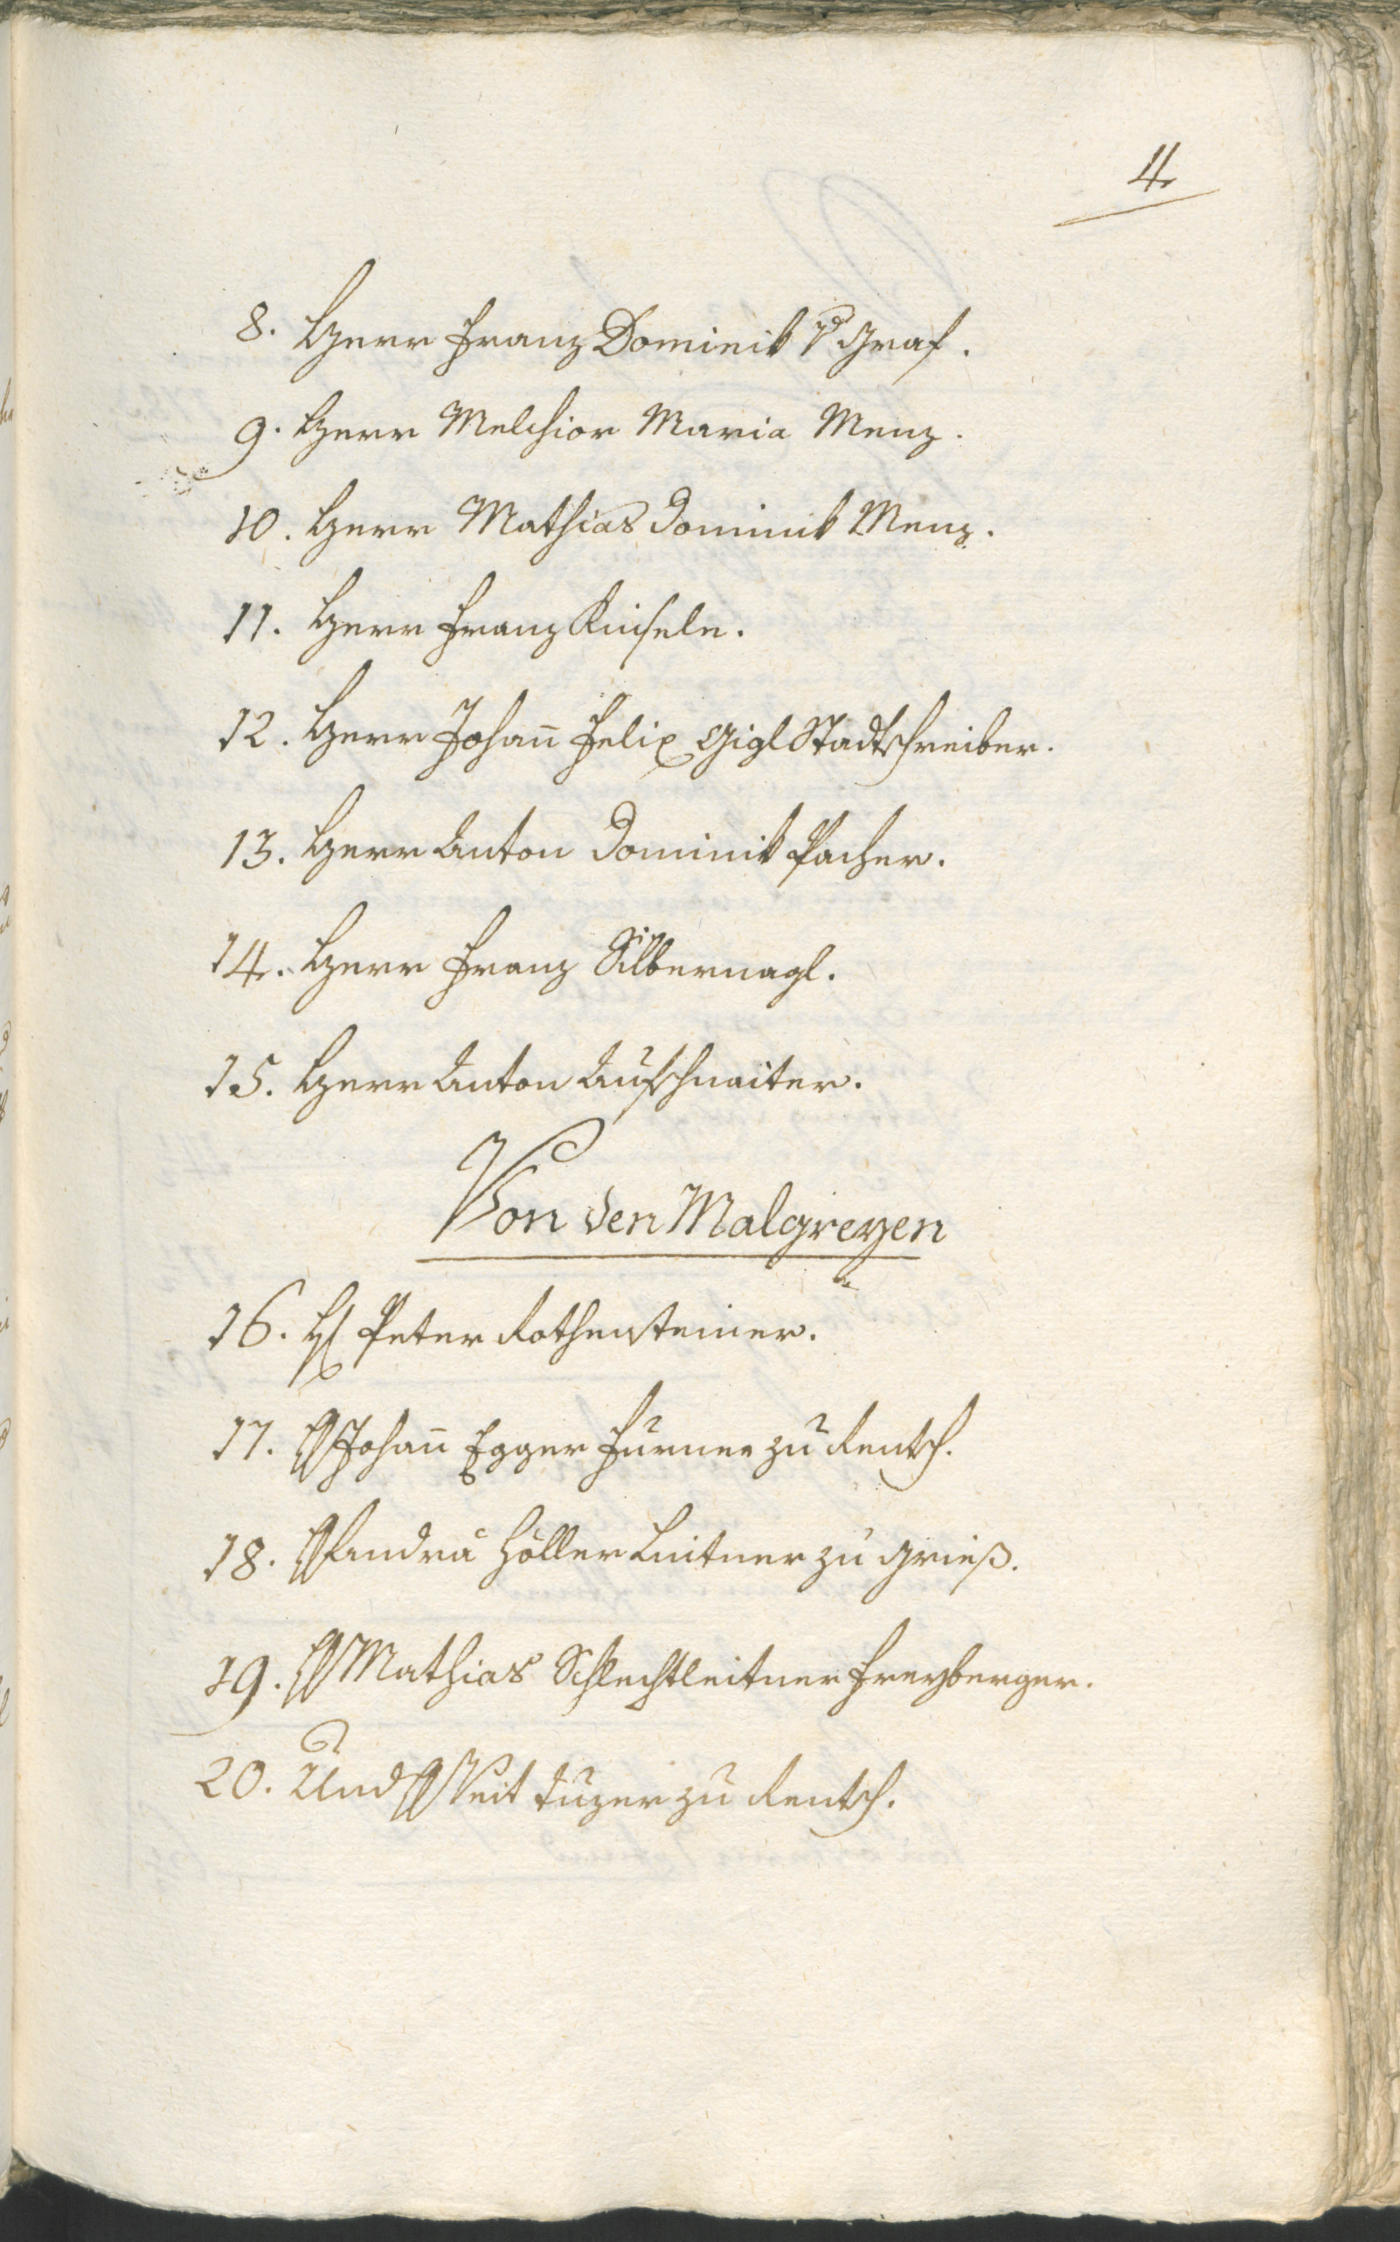 4
8. Herr Franz Dominik v Graf.
9. Herr Melchior Maria Menz.
10. Herr Mathias Dominik Menz.
11. Herr Franz Kinsele.
12. Herr Johan̄ Felix Gigl Stadtschreiber.
13. Herr Anton Dominik Pacher.
14. Herr Franz Silbernagl.
15. Herr Anton Aufschnaiter.
Von den Malgreyen
16. H Peter Rothensteiner.
17. Johan̄ Egger Furner zu Rentsch.
18. Andrä Höller Leitner zu Grieß.
19. Mathias Schlechtleitner Freyberger.
20. Und Veit Tuzer zu Rentsch.